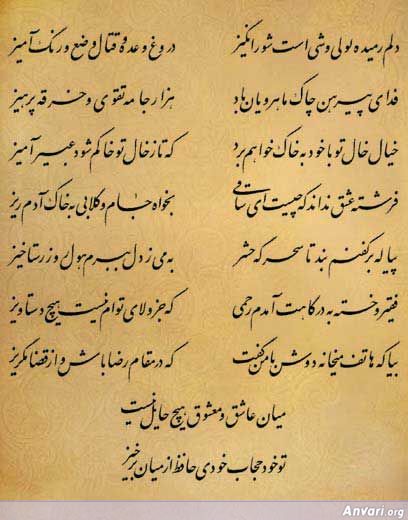 دلم رمیده لولی‌وشی است شورانگیز دروغ وعده و قتال وضع و رنگ آمیز
فدای پیرهن چاک ماهرویان باد هزار جامه تقوی و خرقه پرهیز
خیال خال تو با خود به خاک خواهم برد که تا ز خال تو خاکم شود عبیر آمیز
فرشته عشق نداند که چیست ای ساقی بخواه جام و گلابی به خاک آدم ریز
پیاله بر کفنم بند تا سحرگه حشر به می ز دل ببرم هول روز رستاخیز
فقیر و خسته به درگاهت آمدم رحمی که جز ولای توام نیست هیچ دستاویز
بیا که هاتف میخانه دوش با من گفت که در مقام رضا باش و از قضا مگریز
میان عاشق و معشوق هیچ حایل نیست
تو خود حجاب خودی حافظ از میان برخیز
Anvari.org